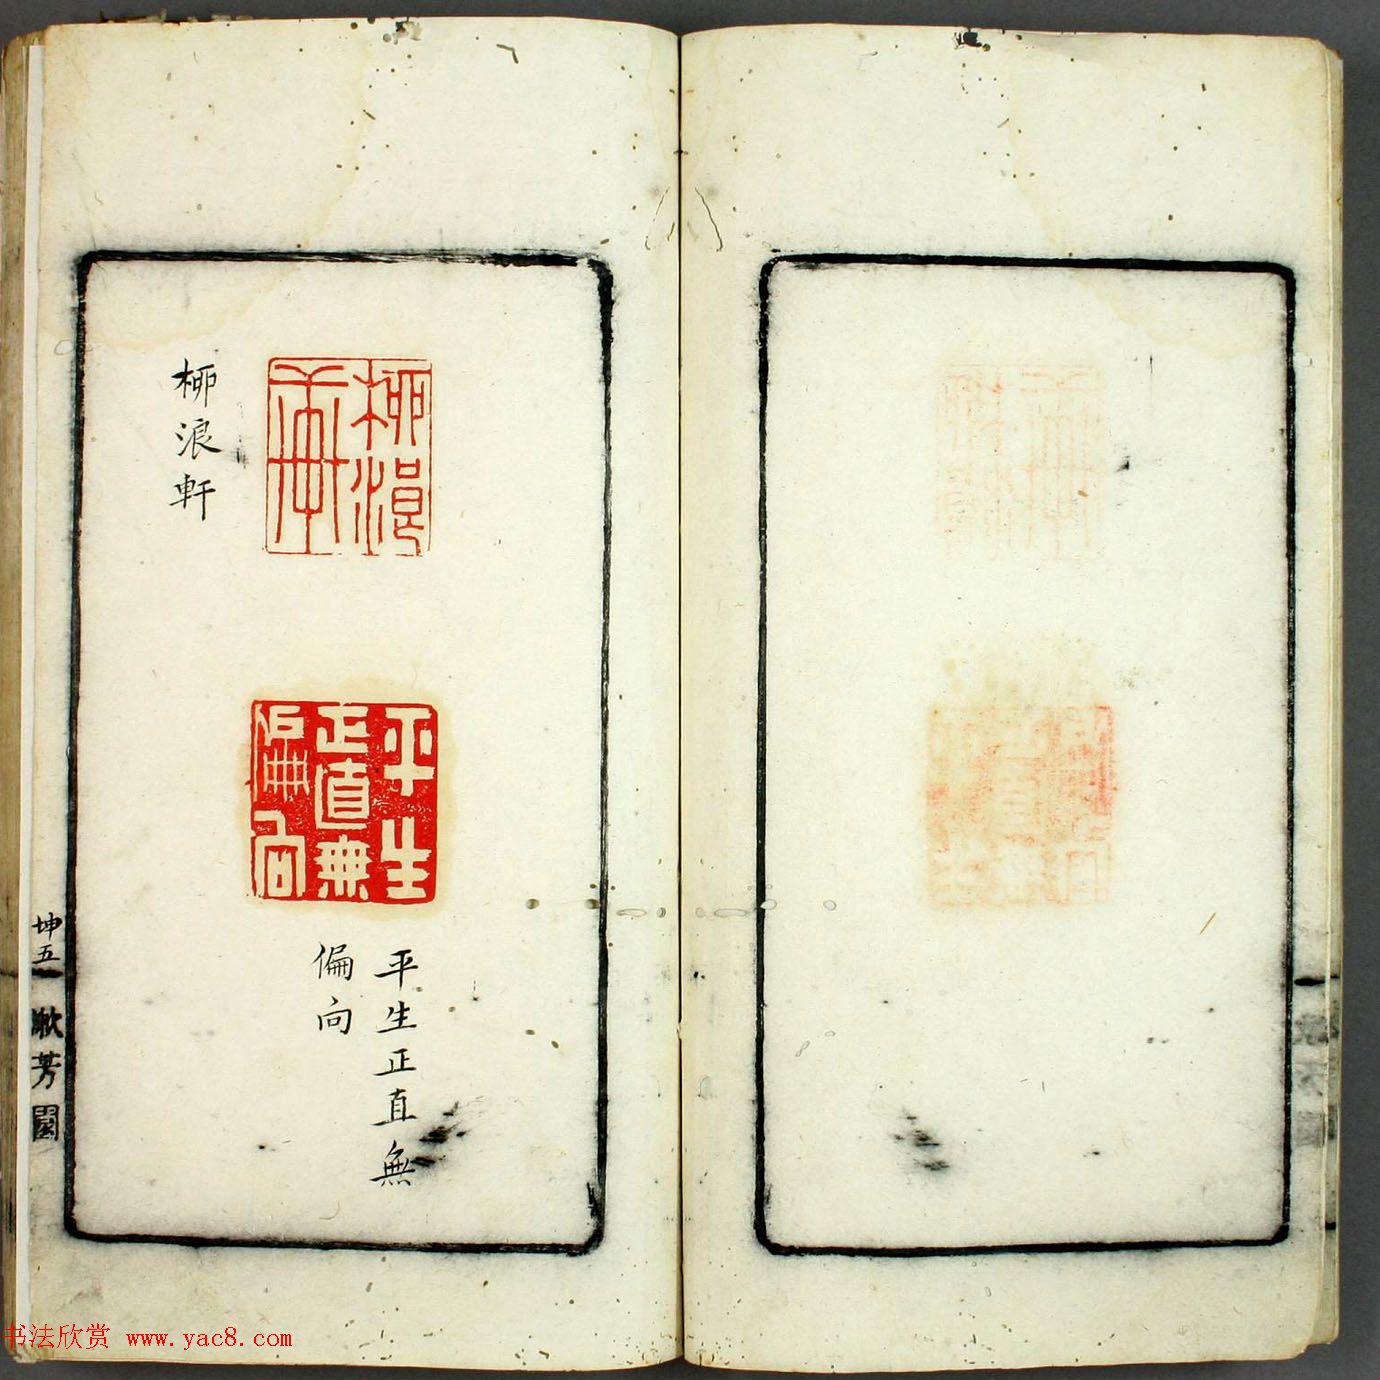 柳浪軒
柳浪軒
平生正直無偏向
平生正直無
偏向
坤五
漱芳園
书法欣赏 www.yac8.com